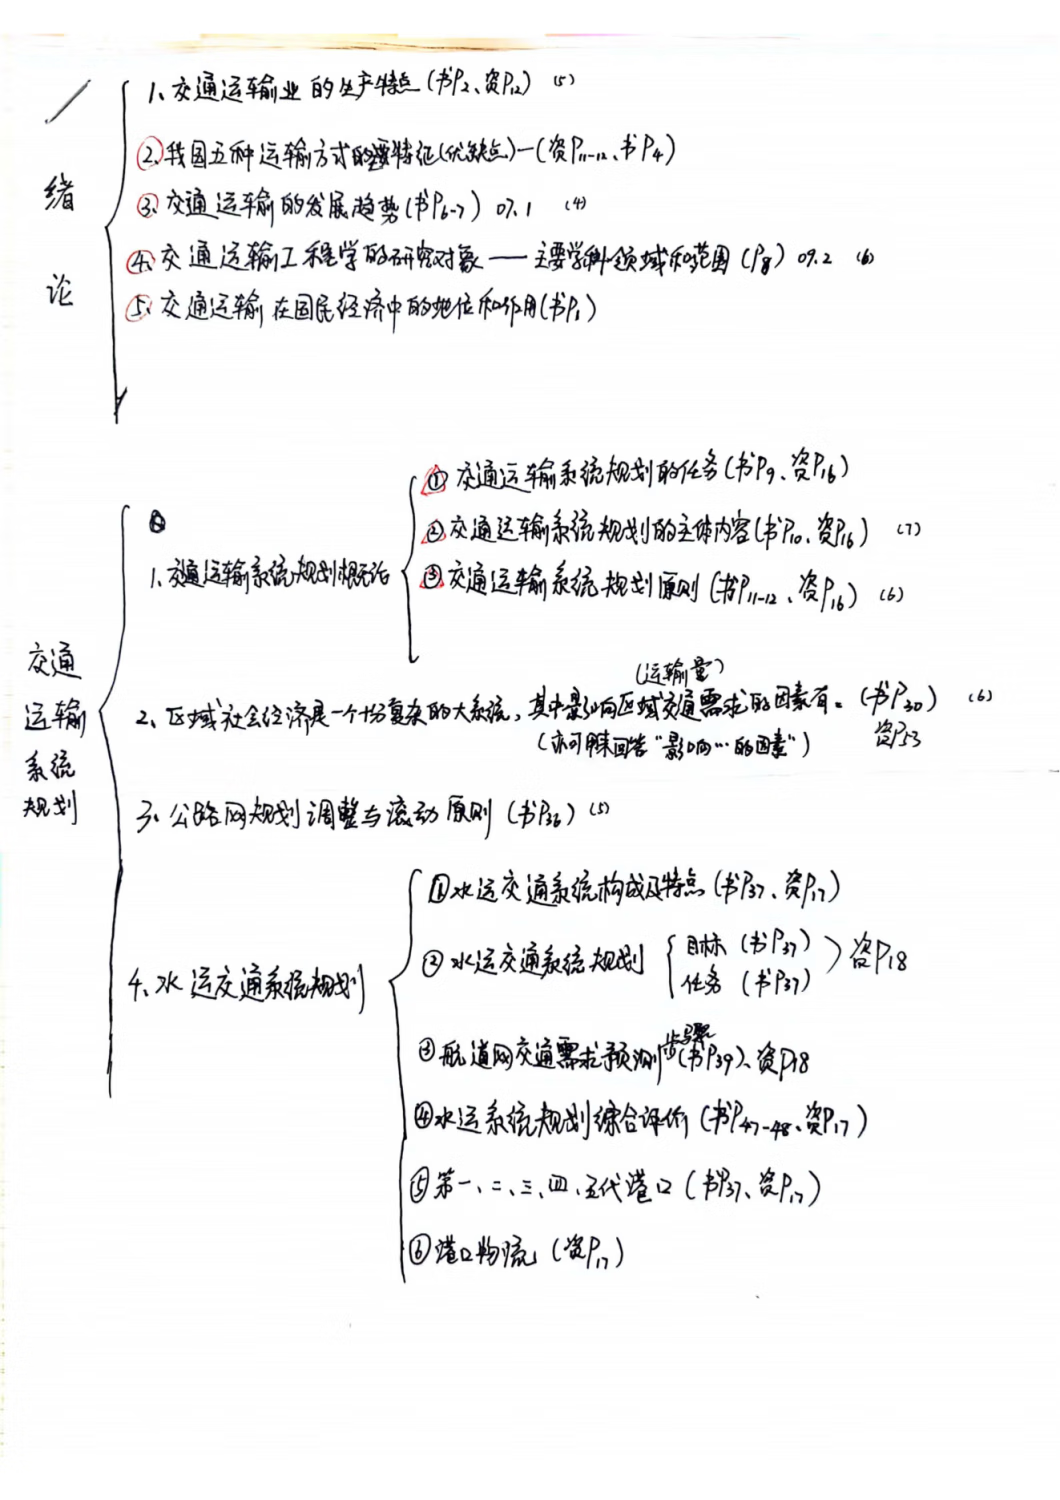 绪论
1、交通运输业的生产特点(书P2、资P12) (5)
②、我国五种运输方式的主要特征(优缺点)—(资P11-12、书P4)
③、交通运输的发展趋势(书P6-7) 07.1 (4)
④、交通运输工程学的研究对象——主要学科领域和范围(P8) 09.2 (6)
⑤、交通运输在国民经济中的地位和作用(书P1)
交通运输系统规划
1、交通运输系统规划概论
① 交通运输系统规划的任务(书P9、资P16)
② 交通运输系统规划的主体内容(书P10、资P16) (7)
③ 交通运输系统规划原则(书P11-12、资P16) (6)
(运输量)
2、区域社会经济是一个十分复杂的大系统,其中影响区域交通需求的因素有:(书P30) (6)
(亦可用来回答“影响…的因素”) 资P53
3、公路网规划调整与滚动原则(书P36) (5)
4、水运交通系统规划
①水运交通系统构成及特点(书P37、资P17)
② 水运交通系统规划
目标(书P37)
任务(书P37)
资P18
③航道网交通需求预测步骤(书P39)、资P18
④水运系统规划综合评价(书P47-48、资P17)
⑤第一、二、三、四、五代港口(书P37、资P17)
⑥港口物流(资P17)